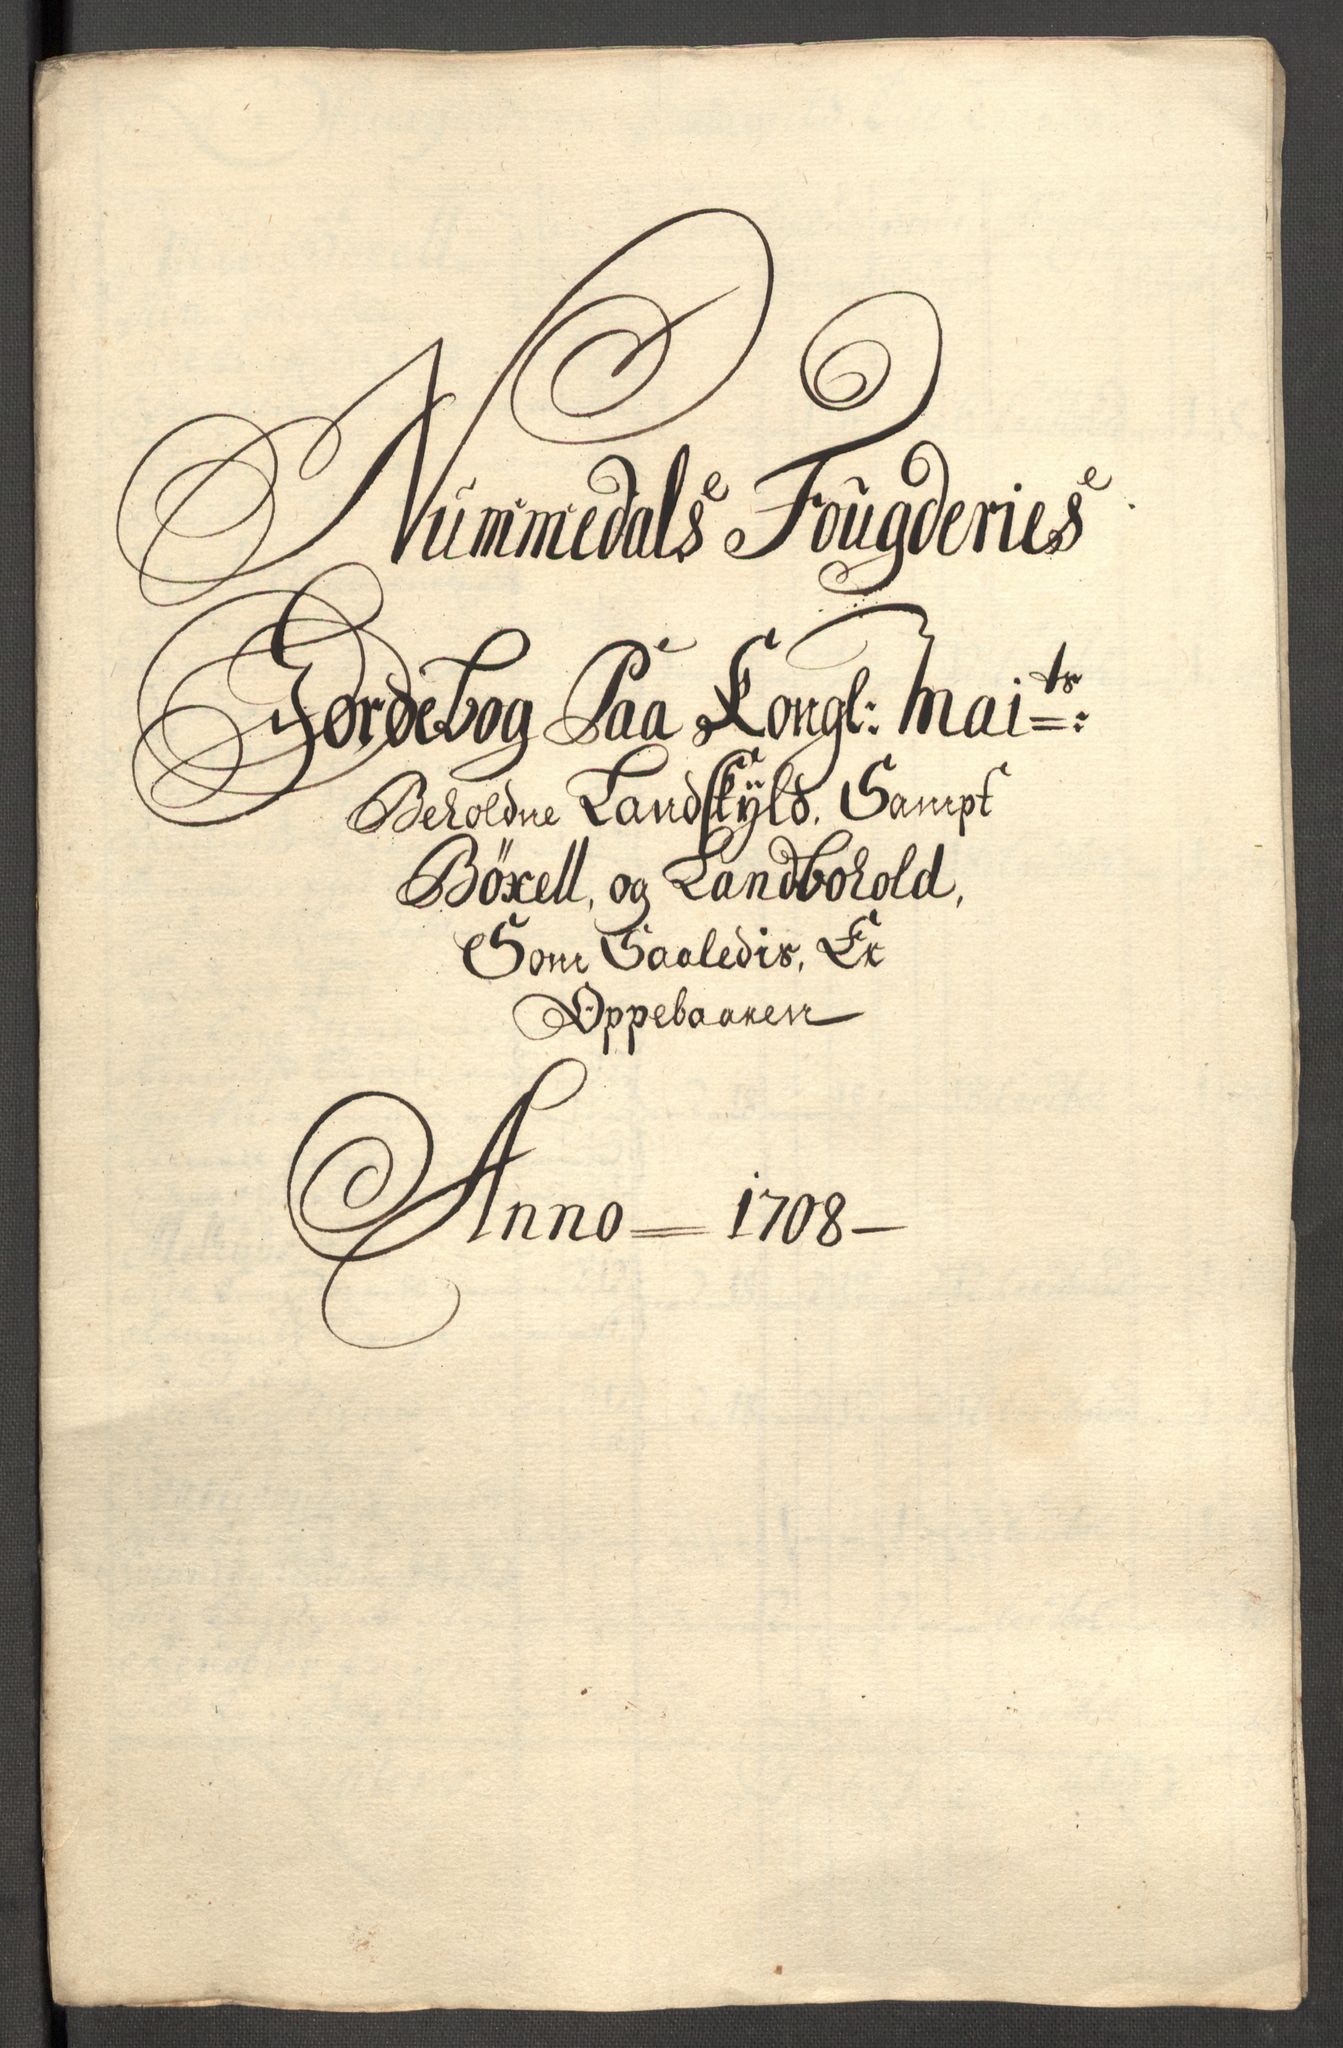 Nummedals Fougderies
Jordebog Paa Kongl: Maits:
Beholdne Landskÿld. Sampt
Böxell, og Landbohold,
Som Saaledis, Er
Oppebaaren
Anno 1708